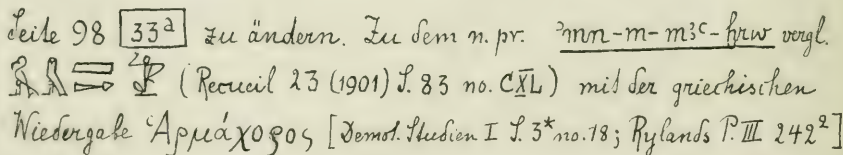 Seite 98 33ᵃ zu ändern. Zu dem n. pr. ꜣmn-m-mꜣꜥ-ḫrw vergl.
(Recueil 23 (1901) S. 83 no. CXL) mit der griechischen
Wiedergabe Ἁρμάχορος [Demot. Studien I S. 3* no. 18; Rylands P. III 242²]